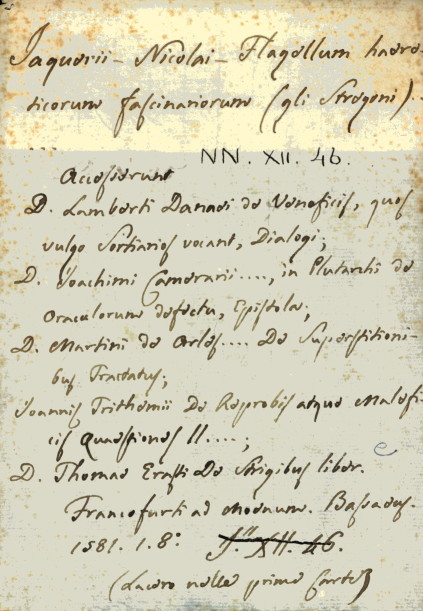 Jaquerii - Nicolai - Flagellum haere-
ticorum fascinariorum (gli Stregoni).
...
NN. XII. 46.
Accesserunt
D. Lamberti Danaei de Veneficis, quos
vulgo Sortiarios vocant, Dialogi;
D. Joachimi Camerarii...., in Plutarchi de
Oraculorum defectu, Epistola;
D. Martini de Arles.... De Superstitioni-
bus Tractatus;
Joannis Trithemii De Reprobis atque Malefi-
cis Quaestiones II....;
D. Thomae Erasti De Strigibus liber.
Francofurti ad Moenum. Bassaeus.
1581. 1. 8°. XII. 46.
(Lacero nelle prime Carte)